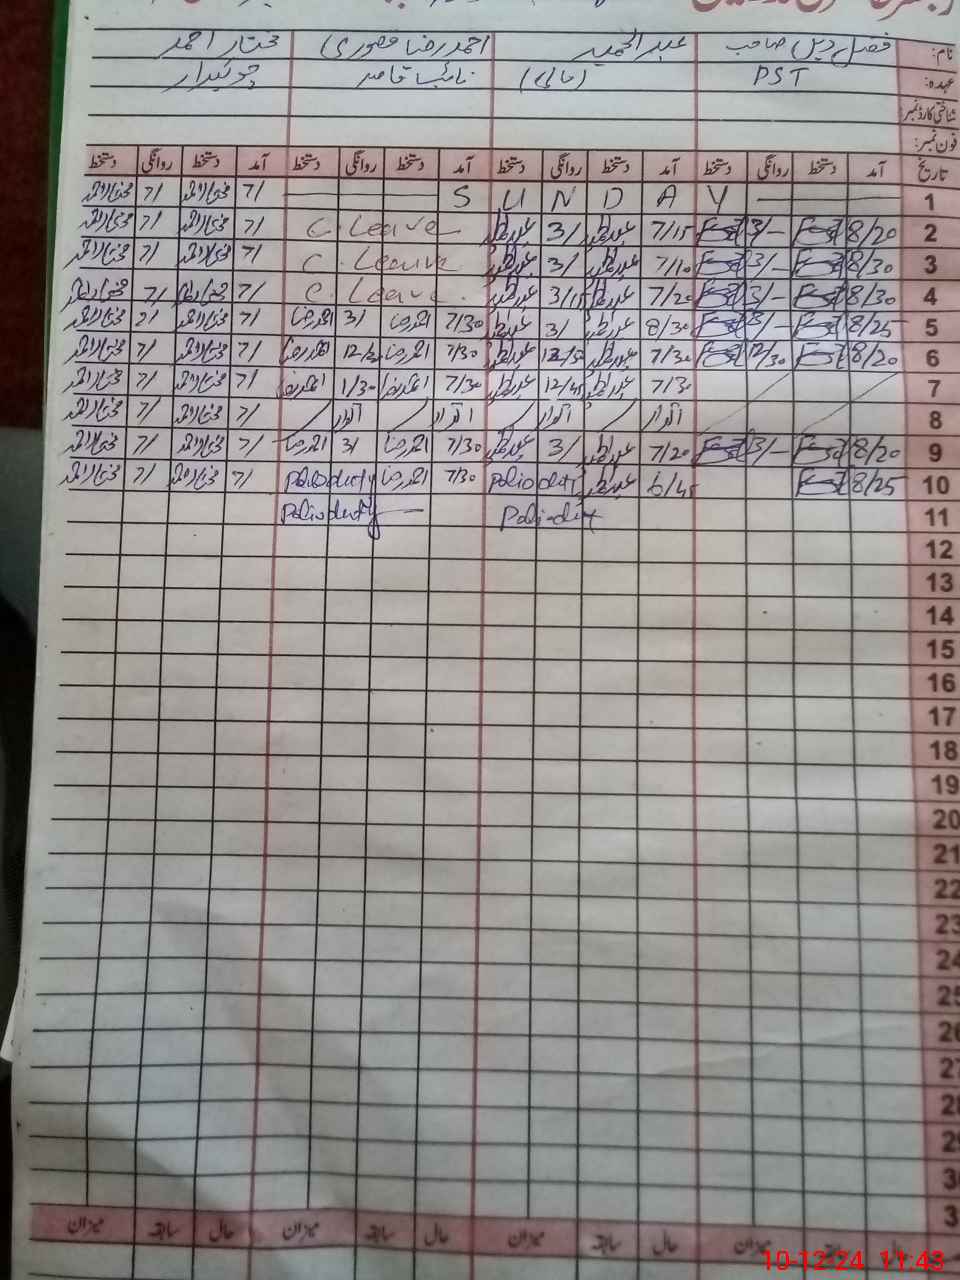 نام: فضل دین صاحب عبدالحمید احمد رضا قصوری مختار احمد
عہدہ: PST (مالی) نائب قاصد چوکیدار
شناختی کارڈ نمبر:
فون نمبر:
تاریخ آمد دستخط روانگی دستخط آمد دستخط روانگی دستخط آمد دستخط روانگی دستخط آمد دستخط روانگی دستخط
1 S U N D A Y 7/ مختار احمد 7/ مختار احمد
2 8/20 3/- 7/15 عبدالحمید 3/ عبدالحمید C. Leave 7/ مختار احمد 7/ مختار احمد
3 8/30 3/- 7/10 عبدالحمید 3/ عبدالحمید C. Leave 7/ مختار احمد 7/ مختار احمد
4 8/30 3/- 7/20 عبدالحمید 3/15 عبدالحمید C. Leave. 7/ مختار احمد 7/ مختار احمد
5 8/25 3/- 8/30 عبدالحمید 3/ عبدالحمید 7/30 احمد رضا 3/ احمد رضا 7/ مختار احمد 7/ مختار احمد
6 8/20 12/30 7/30 عبدالحمید عبدالحمید 7/30 احمد رضا احمد رضا 7/ مختار احمد 7/ مختار احمد
7 7/30 عبدالحمید 12/45 عبدالحمید 7/30 احمد رضا 1/30 احمد رضا 7/ مختار احمد 7/ مختار احمد
8 اتوار اتوار اتوار اتوار 7/ مختار احمد 7/ مختار احمد
9 8/20 3/- 7/20 عبدالحمید 3/ عبدالحمید 7/30 احمد رضا 3/ احمد رضا 7/ مختار احمد 7/ مختار احمد
10 8/25 6/45 عبدالحمید Polio duty 7/30 احمد رضا Polio duty 7/ مختار احمد 7/ مختار احمد
11 Polio duty Polio duty
12
13
14
15
16
17
18
19
20
21
22
23
24
25
26
27
28
29
3
3
حال سابقہ میزان حال سابقہ میزان حال سابقہ میزان حال سابقہ میزان
10-12-24 11:43